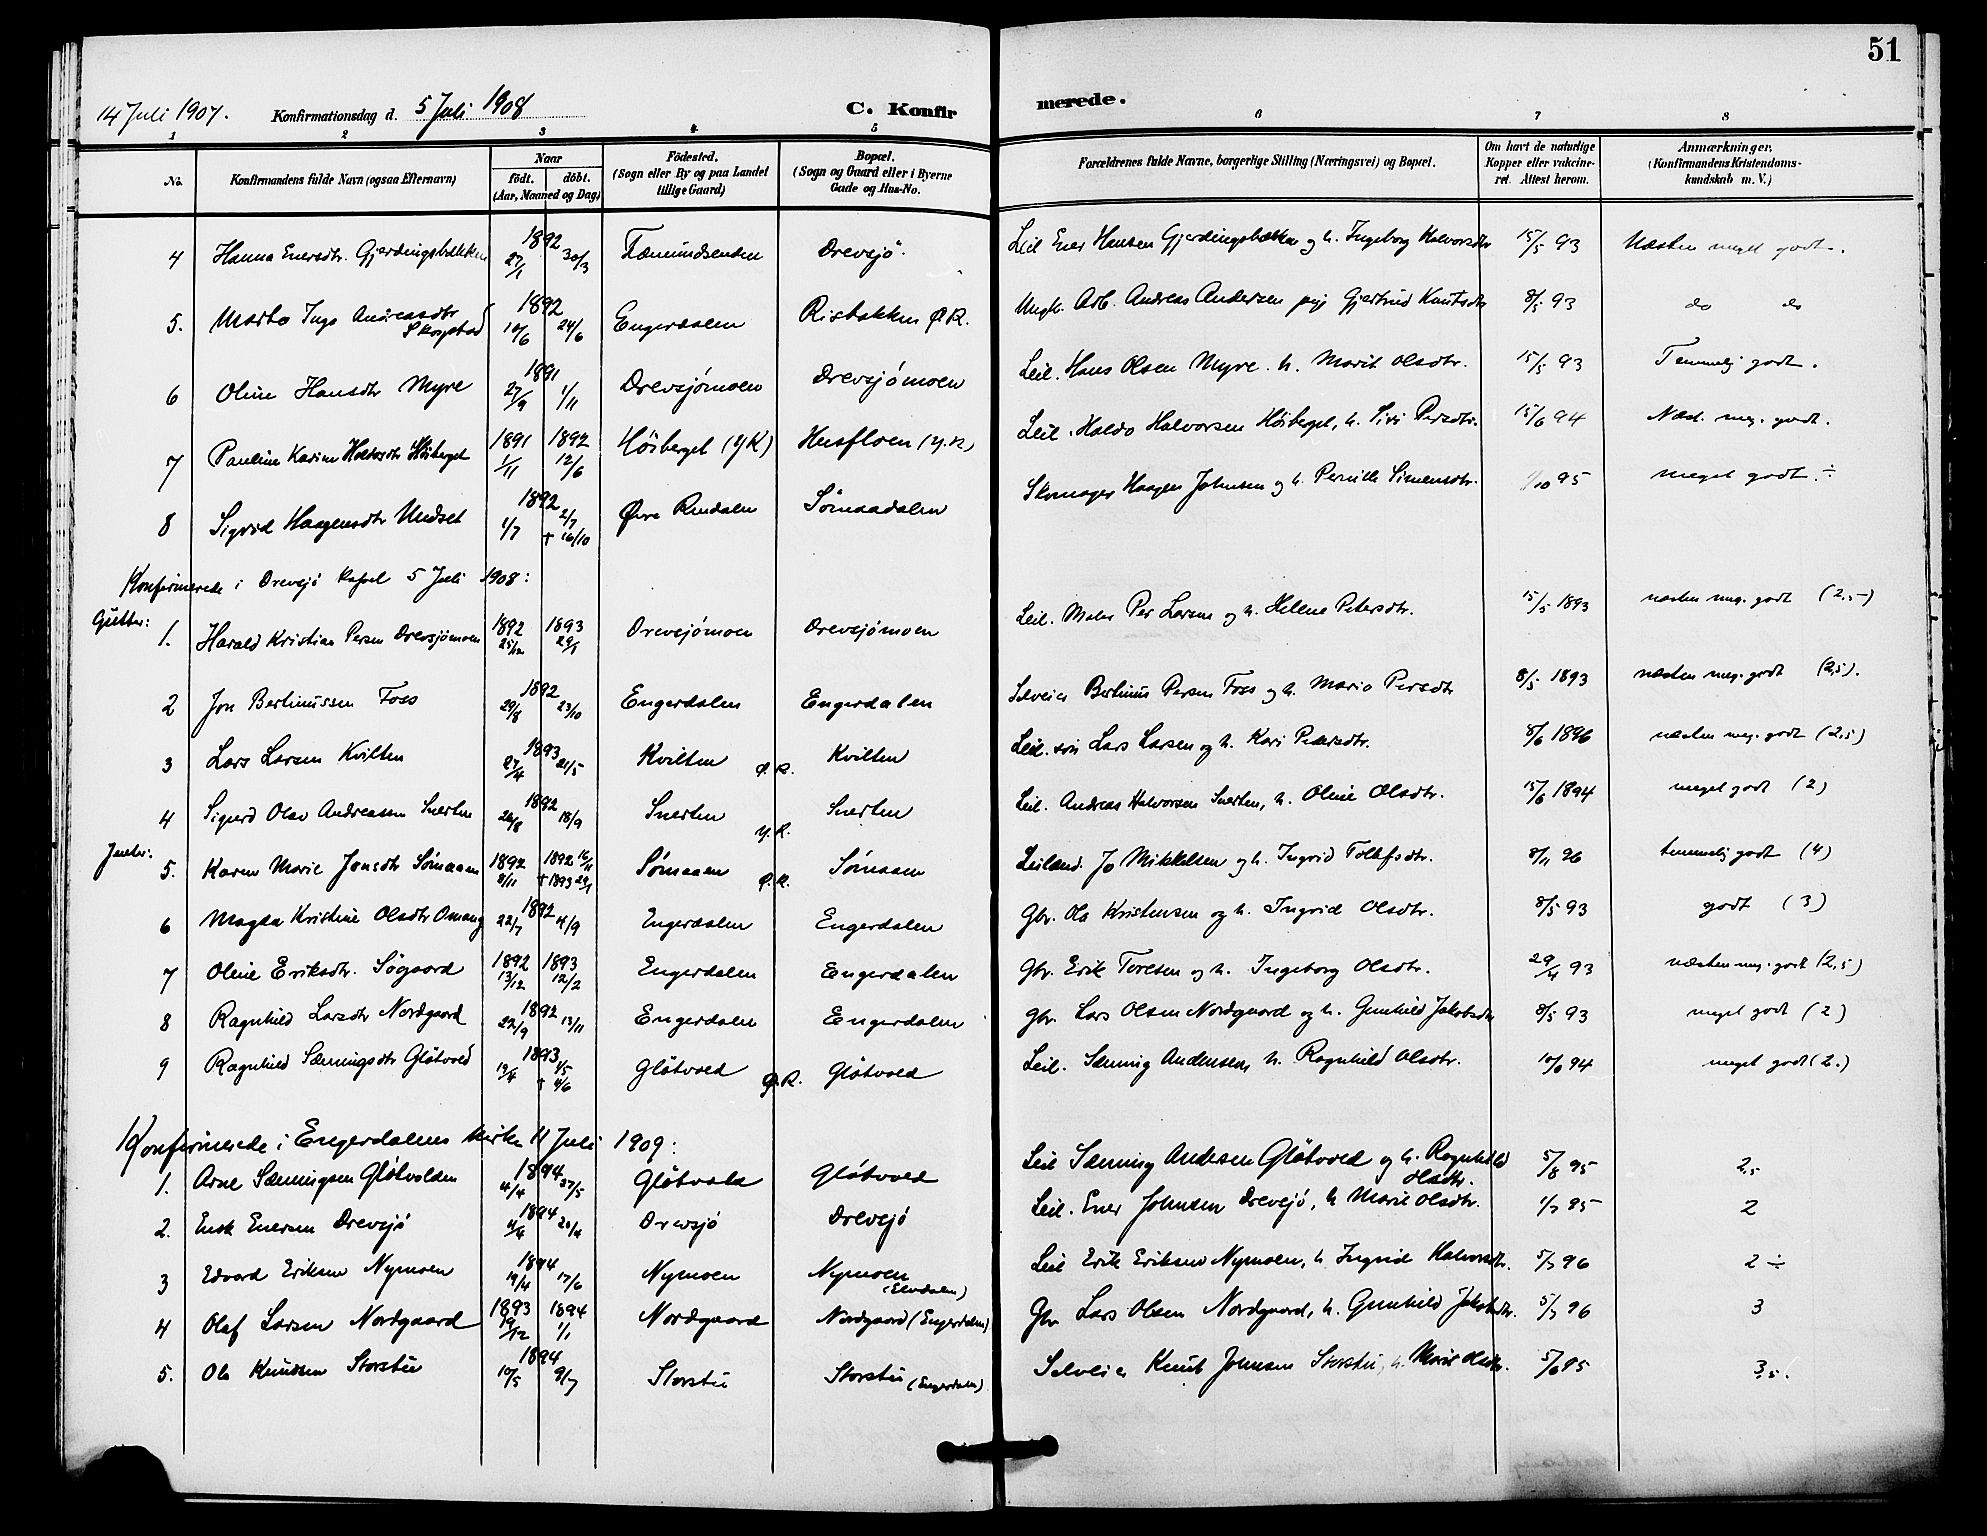 51
14 Juli 1907. Konfirmationsdag d. 5 Juli 1908 C. Konfirmerede.
1 2 3 4 5 6 7 8
No. Konfirmandens fulde Navn (ogsaa Efternavn) Naar født. døbt. (Aar, Maaned og Dag) Födested. (Sogn eller By og paa Landet tillige Gaard) Bopæl. (Sogn og Gaard eller i Byerne Gade og Hus-No. Forældrenes fulde Navne, borgerlige Stilling (Næringsvei) og Bopæl. Om havt de naturlige Kopper eller vakcineret. Attest herom. Anmærkninger. (Konfirmandens Kristendomskundskab m. V.)
4 Hanna Enersdtr. Gjerdingsbækken 1892 27/1 30/3 Fæmundsenden Drevsjö. Leil Ener Hansen Gjerdingsbækken og h. Ingeborg Halvorsdtr 15/5 93 Næsten meget godt.
5. Marte Inga Andreasdtr Skogstad 1892 /6 24/6 Engerdalen Risbakken Ø.R. Ungk. Arb. Andreas Andersen pige Gjertrud Knutsdtr 8/5 93 do do
6 Oline Hansdtr Myre 1891 27/9 1/11 Drevsjømoen Drevsjømoen Leil. Hans Olsen Myre h. Marit Olsdtr. 15/5 93 Temmelig godt.
7 Pauline Karine Holdosdtr Höiberget 1891 1/11 1892 12/6 Höiberget (Y.R) Husfloen (Y.R) Leil. Haldo Halvorsen Höiberget, h. Siri Persdtr. 15/6 94 Næst. meg. godt.
8 Sigrid Haagensdtr Undset 1892 1/7 2/7 † 16/10 Øvre Rendalen Sømaadalen Skomager Haagen Johnsen og h. Pernille Simensdtr. /10 95 meget godt ÷
Konfirmerede i Drevsjö kapel 5 Juli 1908:
Gutter: 1. Harald Kristian Persen Drevsjømoen 1892 25/12 1893 29/1 Drevsjómoen Drevsjómoen Leil. Maler Per Larsen og h. Helene Petersdtr. 15/5 1893 næsten meg. godt (2,5)
2 Jon Bertinussen Foss 1892 29/8 23/10 Engerdalen Engerdalen Selveier Bertinus Persen Foss og h. Marie Persdtr 8/5 1893 næsten meg. godt (2,5).
3 Lars Larsen Kvilten 1893 27/4 21/5 Kvilten Ø.R. Kvilten Leil. Lars Larsen og h. Kari Pedersdtr. 8/6 1896 næsten meg. godt (2,5)
4 Sigurd Olav Andreassen Snerten 1892 26/8 18/9 Snerten Y.R. Snerten Leil. Andreas Halvorsen Snerten, h. Oline Olsdtr. 15/6 1894 meget godt (2)
Jenter: 5. Karen Marie Jonsdtr Sømaaen 1892 8/11 1892 16/11 † 1893 29/1 Sømaaen Ø.R. Sømaaen Leilænd. Jo Mikkelsen og h. Ingrid Tollefsdtr. 8/11 96 temmelig godt (4)
6 Magda Kristine Olsdtr Omang 1892 22/7 4/9 Engerdalen Engerdalen Gbr. Ole Kristensen og h. Ingrid Olsdtr. 8/5 93 godt (3)
7 Oline Eriksdtr. Søgaard 1892 13/12 1893 12/2 Engerdalen Engerdalen Gbr. Erik Toresen og h. Ingeborg Olsdtr. 29/4 93 næsten meg. godt (2,5)
8 Ragnhild Larsdtr Nordgaard 1892 22/9 13/11 Engerdalen Engerdalen Gbr. Lars Olsen Nordgaard og h. Gunhild Jakobsdtr 8/5 93 meget godt (2)
9 Ragnhild Sæmingsdtr Gløtvold 1893 13/4 4/5 † 4/6 Gløtvold Ø.R. Gløtvold Leil. Sæming Andersen, h. Ragnhild Olsdtr. 94 meget godt (2.)
Konfirmerede i Engerdalens kirke 11 Juli 1909:
1. Arne Sæmingsen Gløtvolden 1894 4/4 27/5 Gløtvold Gløtvold Leil Sæming Andersen Gløtvold og h. Ragnhild Olsdtr. 5/8 95 2,5
2. Enok Enersen Drevsjö 1894 4/4 20/4 Drevsjö Drevsjö Leil. Ener Johnsen Drevsjö, h Marie Olsdtr. 1/7 95 2
3 Edvard Eriksen Nymoen 1894 19/4 17/6 Nymoen Nymoen (Elvdalen) Leil Erik Eriksen Nymoen, h Ingrid Halvorsdtr. 5/7 96 2 ÷
4 Olaf Larsen Nordgaard 1893 19/12 1894 1/1 Nordgaard Nordgaard (Engerdalen) Gbr Lars Olsen Nordgaard, h. Gunhild Jakobsdtr. 5/7 96 3
5. Ole Knudsen Storstu 1894 10/5 9/7 Storstu Storstu (Engerdalen) Selveier Knut Johnsen Storstu, h. Marie Olsdtr. 5/6 95 3,5.